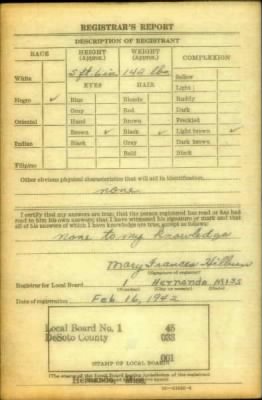 REGISTRAR'S REPORT
DESCRIPTION OF REGISTRANT
RACE HEIGHT (Approx.) WEIGHT (Approx.) COMPLEXION
White 5 ft. 6 in 142 lbs Sallow
EYES HAIR Light
Negro ✓ Blue Blonde Ruddy
Gray Red Dark
Oriental Hazel Brown Freckled
Brown ✓ Black ✓ Light brown ✓
Indian Black Gray Dark brown
Bald Black
Filipino
Other obvious physical characteristics that will aid in identification
none
I certify that my answers are true; that the person registered has read or has had
read to him his own answers; that I have witnessed his signature or mark and that
all of his answers of which I have knowledge are true, except as follows:
none to my knowledge
Mary Frances Hilburn
(Signature of registrar)
Registrar for Local Board Hernando Miss
(Number) (City or county) (State)
Date of registration Feb. 16, 1942
Local Board No. 1 45
DeSoto County 033
001
STAMP OF LOCAL BOARD
Hernando, Miss.